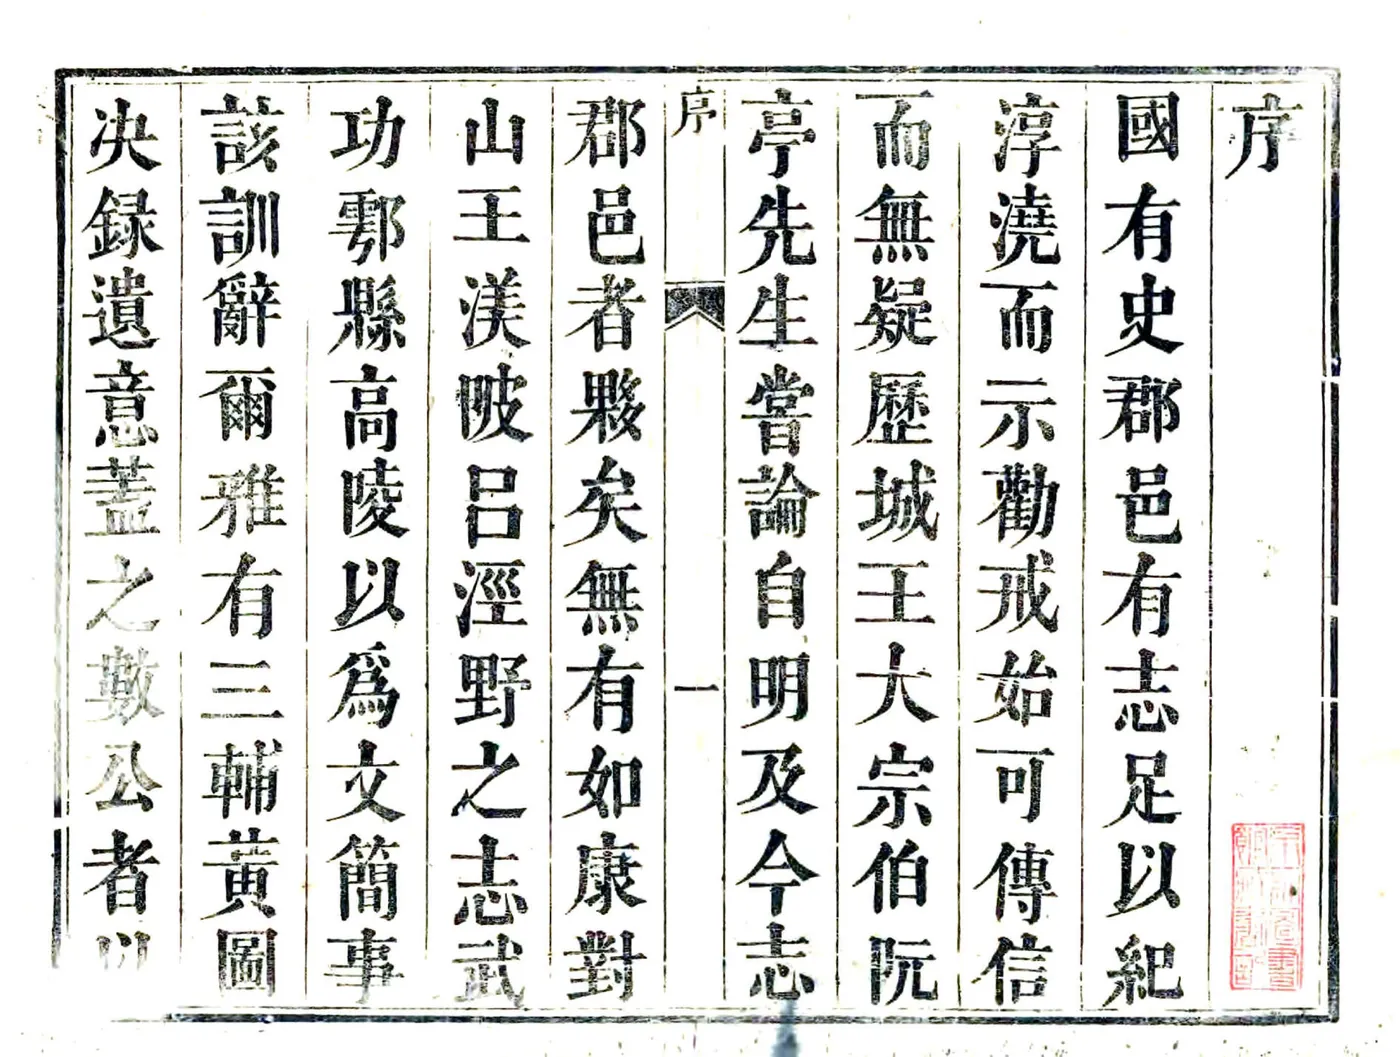 序
國有史郡邑有志足以紀
淳澆而示勸戒始可傳信
而無疑歷城王大宗伯阮
亭先生嘗論自明及今志
序
一
郡邑者夥矣無有如康對
山王渼陂呂涇野之志武
功鄠縣高陵以爲文簡事
該訓辭爾雅有三輔黃圖
决録遺意葢之數公者以